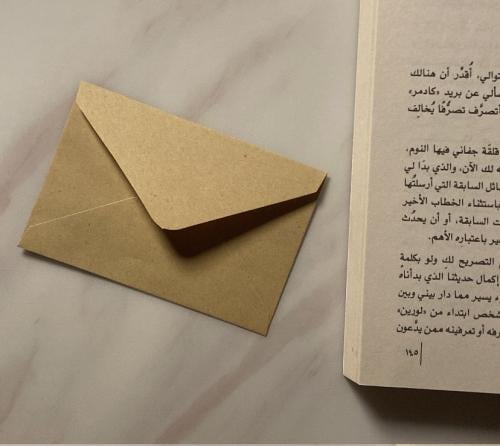 توالي، أُقدَّر أن هنالك
سألي عن بريد «كادمر»
تصرَّف تصرُّفًا يُخالِف
قلقة جفاني فيها النوم،
ه لك الآن، والذي بدَا لي
ئل السابقة التي أرسلتُها
باستثناء الخطاب الأخير
ت السابقة، أو أن يحدُث
ير باعتباره الأهم.
التصريح لكِ ولو بكلمة
إكمال حديثنا الذي بدأناه
ء يسير مما دار بيني وبين
شخص ابتداء من «لورين»
رفه أو تعرفينه ممن يدَّعون
١٤٥